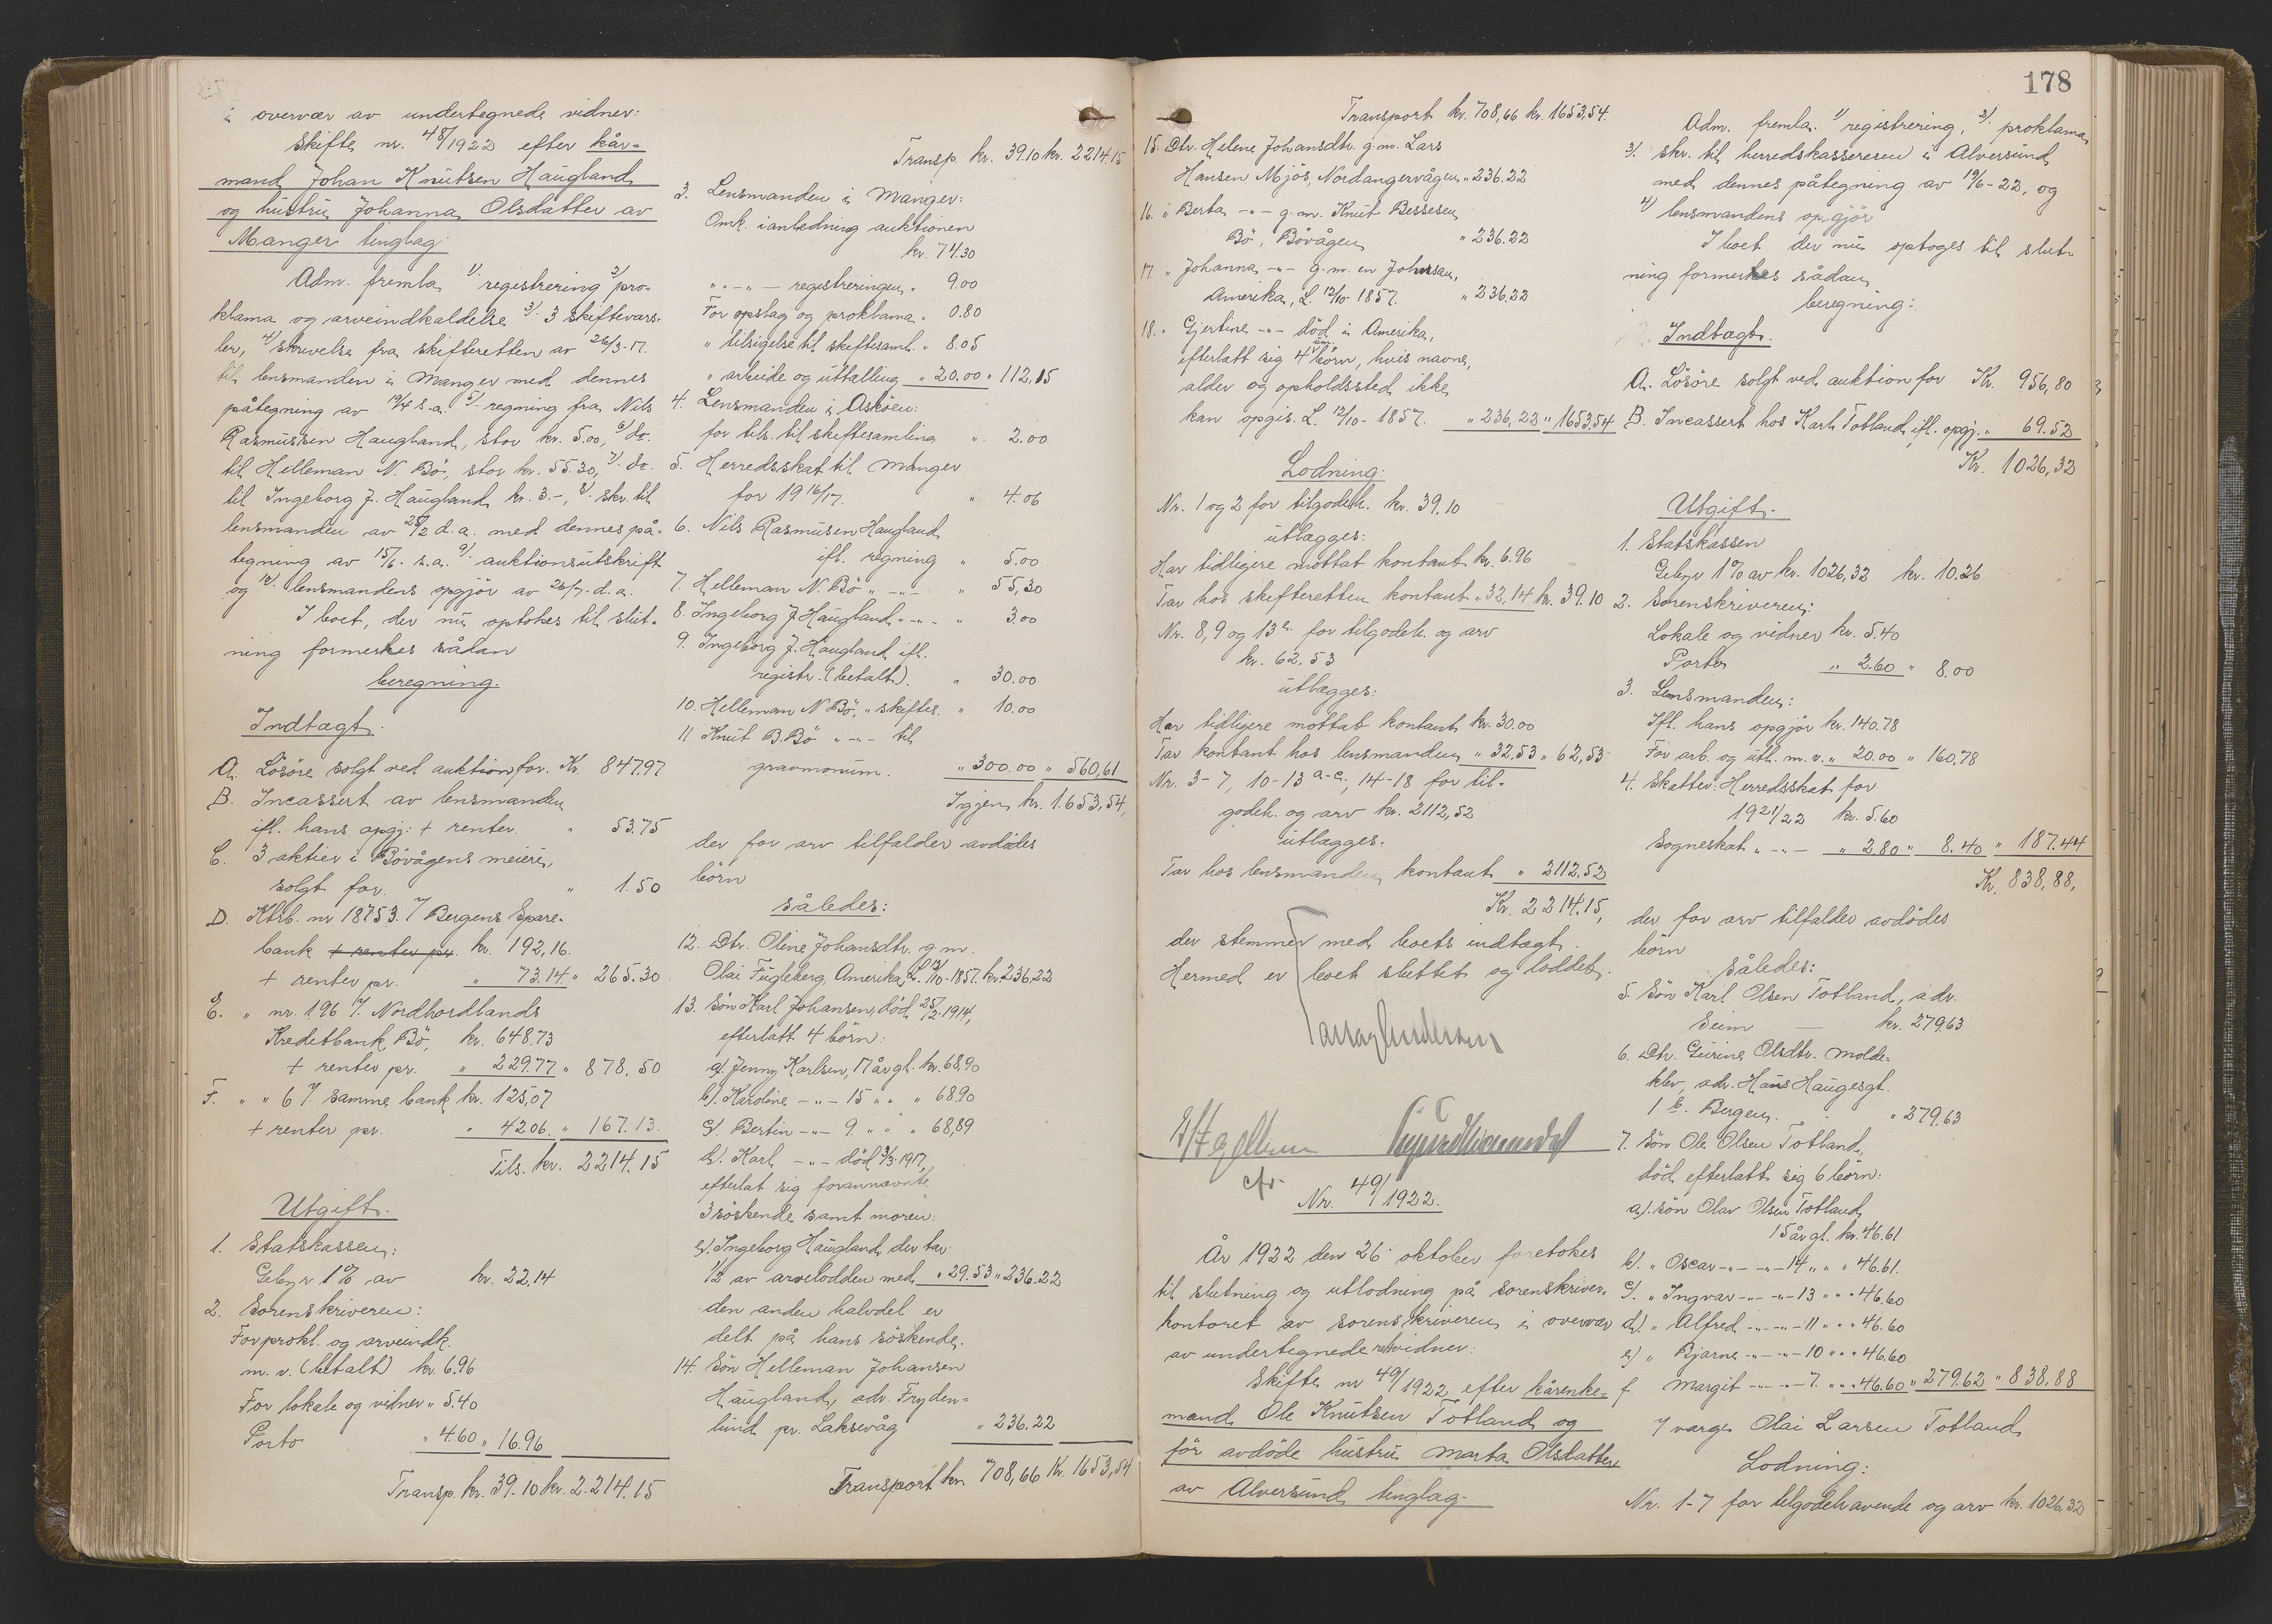 i overvær av undertegnede vidner:
Skifte nr. 48/1922 efter kår-
mand Johan Knutsen Haugland
og hustru Johanna Olsdatter av
Manger tinglag.
Adm. fremla 1/. registrering 2/ pro-
klama og arveindkaldelse 3/. 3 skiftevars-
ler, 4/ skrivelse fra skifteretten av 26/3-17.
til lensmanden i Manger med dennes
påtegning av 19/4 s.a. 5/. regning fra Nils
Rasmussen Haugland, stor kr. 5.00, 6/ do.
til Helleman N. Bö, stor kr. 55.30, 7/. do.
til Ingeborg J. Haugland kr. 3.-, 8/. skr. til
lensmanden av 28/2 d.a. med dennes på-
tegning av 15/6. s.a. 9/. auktionsutskrift
og 10/. lensmandens opgjör av 26/7. d.a.
I boet, der nu optokes til slut-
ning formerkes sådan
beregning.
Indtægt.
A. Lösöre solgt ved auktion for. Kr. 847.97
B. Incassert av lensmanden
ifl. hans opgj: + renter. " 53.75
C. 3 aktier i Bövågens meieri,
solgt for. " 1.50
D. Ktrb. nr 18753. 7/ Bergens Spare-
bank + renter pr. kr. 192,16.
+ renter pr. " 73.14 " 265.30
E. " nr. 196 7/. Nordhordlands
Kredetbank, Bö, kr. 648.73
+ renter pr. " 229.77 " 878.50
F. " " 6 7/. samme bank kr. 125,07
+ renter pr. " 42.06. " 167.13.
Tils. kr. 2214.15
Utgift.
1. Statskassen:
Gebyr 1% av kr. 22.14
2. Sorenskriveren:
For prokl. og arveindk.
m.v. (betalt) kr. 6.96
For lokale og vidner " 5.40
Porto " 4.60 " 16.96
Transp. kr. 39.10 kr. 2.214.15
Transp. kr. 39.10 kr. 2214.15
3. Lensmanden i Manger:
Omk. i anledning auktionen
kr. 74.30
" " - " - registreringen " 9.00
For opslag og proklama " 0.80
" tilsigelse til skiftesaml. " 8.05
" arbeide og uttælling " 20.00 " 112,15
4. Lensmanden i Asköen:
for tils. til skiftesamling " 2.00
5. Herredsskat til Manger
for 1916/17. " 4.06
6. Nils Rasmusen Haugland
ifl. regning " 5.00
7. Helleman N. Bö " - " - " 55,30
8. Ingeborg J. Haugland " - " - " 3.00
9. Ingeborg J. Haugland ifl.
registr. (betalt). " 30.00
10. Helleman N. Bö, " skiftes. " 10.00
11 Knut B. Bö " - " - til
gravmonum. " 300.00 " 560,61
Igjen kr. 1.653,54,
der for arv tilfalder avdödes
börn
således:
12. Dtr. Oline Johansdtr. g.m.
Olai Fugleberg, Amerika, L. 12/10-1857. kr. 236.22
13. Sön Karl Johansen, död 25/2.1914,
efterlatt 4 börn:
a/. Jenny Karlsen, 17 år gl. kr. 68,90
b/. Karoline - " - 15 " " " 68.90
c/. Bertin - " - 9. " " " 68,89
d/. Karl - " - död 3/3-1917,
efterlat sig forannævnte
3 söskende samt moren:
e/. Ingeborg Haugland, der tar
1/2 av arvelodden med " 29.53 " 236.22
den anden halvdel er
delt på hans söskende.
14. Sön Helleman Johansen
Haugland, adr. Fryden-
lund pr. Laksevåg " 236.22
Transport kr. 708,66 Kr. 1653,54
178
Transport kr. 708,66 kr. 1653,54.
15. Dtr. Helene Johansdtr. g.m. Lars
Hansen Mjös, Nordangervågen " 236.22
16. " Berta - " - g.m. Knut Bessesen
Bö, Bövågen " 236.22
17. " Johanna - " - g.m. en Johnsen,
Amerika, L. 12/10 1857. " 236,22
18. " Gjertine - " - död i Amerika,
efterlatt sig 4 um. börn, hvis navne,
alder og opholdssted ikke
kan opgis. L. 12/10-1857. " 236,22 " 1653,54
Lodning:
Nr. 1 og 2 for tilgodeh. kr. 39.10
utlægges:
Har tidligere mottat kontant kr. 6.96
Tar hos skifteretten kontant " 32,14 kr. 39.10
Nr. 8, 9 og 13 e. for tilgodeh. og arv
kr. 62.53
utlægges:
Har tidligere mottat kontant kr. 30.00
Tar kontant hos lensmanden " 32.53 " 62,53
Nr. 3-7, 10-13 a-c., 14-18 for til-
godeh. og arv kr. 2112,52
utlægges:
Tar hos lensmanden kontant " 2112.52
Kr. 2214.15,
der stemmer med boets indtægt.
Hermed er boet sluttet og loddet.
cfr.
Nr. 49/1922.
År 1922 den 26 oktober foretokes
til slutning og utlodning på sorenskriver-
kontoret av sorenskriveren i overvær
av undertegnede retsvidner:
Skifte nr 49/1922 efter kårenke-
mand Ole Knutsen Totland og
för avdöde hustru Marta Olsdatter
av Alversund tinglag.
Adm. fremla. 1/ registrering, 2/. proklama
3/. skr. til herredskasseresen i Alversund
med dennes påtegning av 19/6-22, og
4/ lensmandens opgjör
I boet der nu optoges til slut-
ning formerkes sådan
beregning:
Indtægt.
A. Lösöre solgt ved auktion for Kr. 956,80
B. Incassert hos Karl Totland, ifl. opgj. " 69.52
Kr. 1026,32
Utgift.
1. Statskassen
Gebyr 1% av kr. 1026,32 kr. 10.26
2. Sorenskriveren:
Lokale og vidner kr. 5.40
Porto " 2.60 " 8.00
3. Lensmanden:
Ifl. hans opgjör kr. 140.78
For arb. og utl. m.v. " 20.00 " 160.78
4. Skatter: Herredsskat for
1921/22 kr. 5.60
Sogneskat " - " - " 2.80 " 8.40 " 187.44
Kr. 838,88,
der for arv tilfalder avdödes
börn
således:
5. Sön Karl Olsen Totland, adr.
Seim - kr. 279.63
6. Dtr. Gurine Olsdtr. Molde-
klev, adr. Hans Haugesgt.
1 b. Bergen. " 279.63
7. Sön Ole Olsen Totland,
död, efterlatt sig 6 börn:
a/. Sön Olav Olsen Totland
15 år gl. kr. 46.61
b/. " Oscar - " - - " - 14 " " " 46.61.
c/. " Ingvar - " - - " - 13 " " " 46.60
d/. " Alfred - " - - " - 11 " " " 46.60
e/ " Bjarne - " - - " - 10 " " " 46.60
f. Margit - " - - " - 7. " " " 46.60 " 279.62 " 838.88
7/ værge Olai Larsen Totland
Lodning:
Nr. 1-7 for tilgodehavende og arv kr. 1026,32